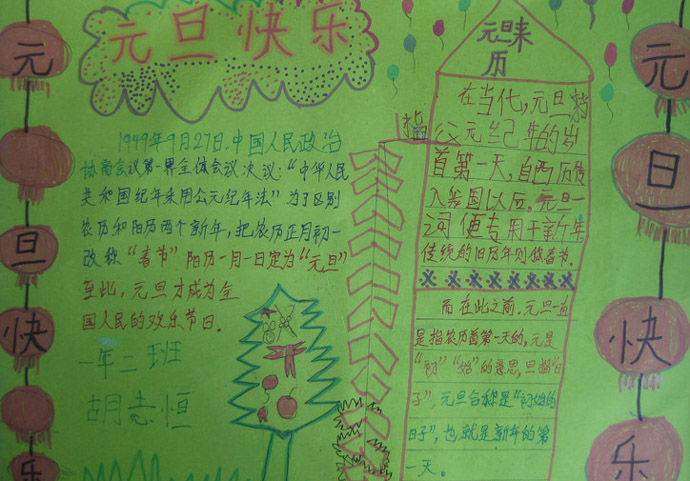 元旦快乐
1949年9月27日.中国人民政治
协商会议第一界全体会议决议:“中华人民
共和国纪年采用公元纪年法”为了区别
农历和阳历两个新年,把农历正月初一
改称“春节”阳历一月一日定为“元旦”
至此,元旦才成为全
国人民的欢乐节日。
一年二班
胡志恒
元旦来
历
在当代,元旦
公元纪年的岁
首第一天,自西历传
入我国以后,元旦一
词便专用于新年
传统的旧历年则称春节。
而在此之前,元旦一直
是指农历首第一天的,元是
“初”“始”的意思,旦指“日
子”,元旦合称是“初始的
日子”,也就是新年的第
一天。
元
旦
快
乐
元
旦
快
乐